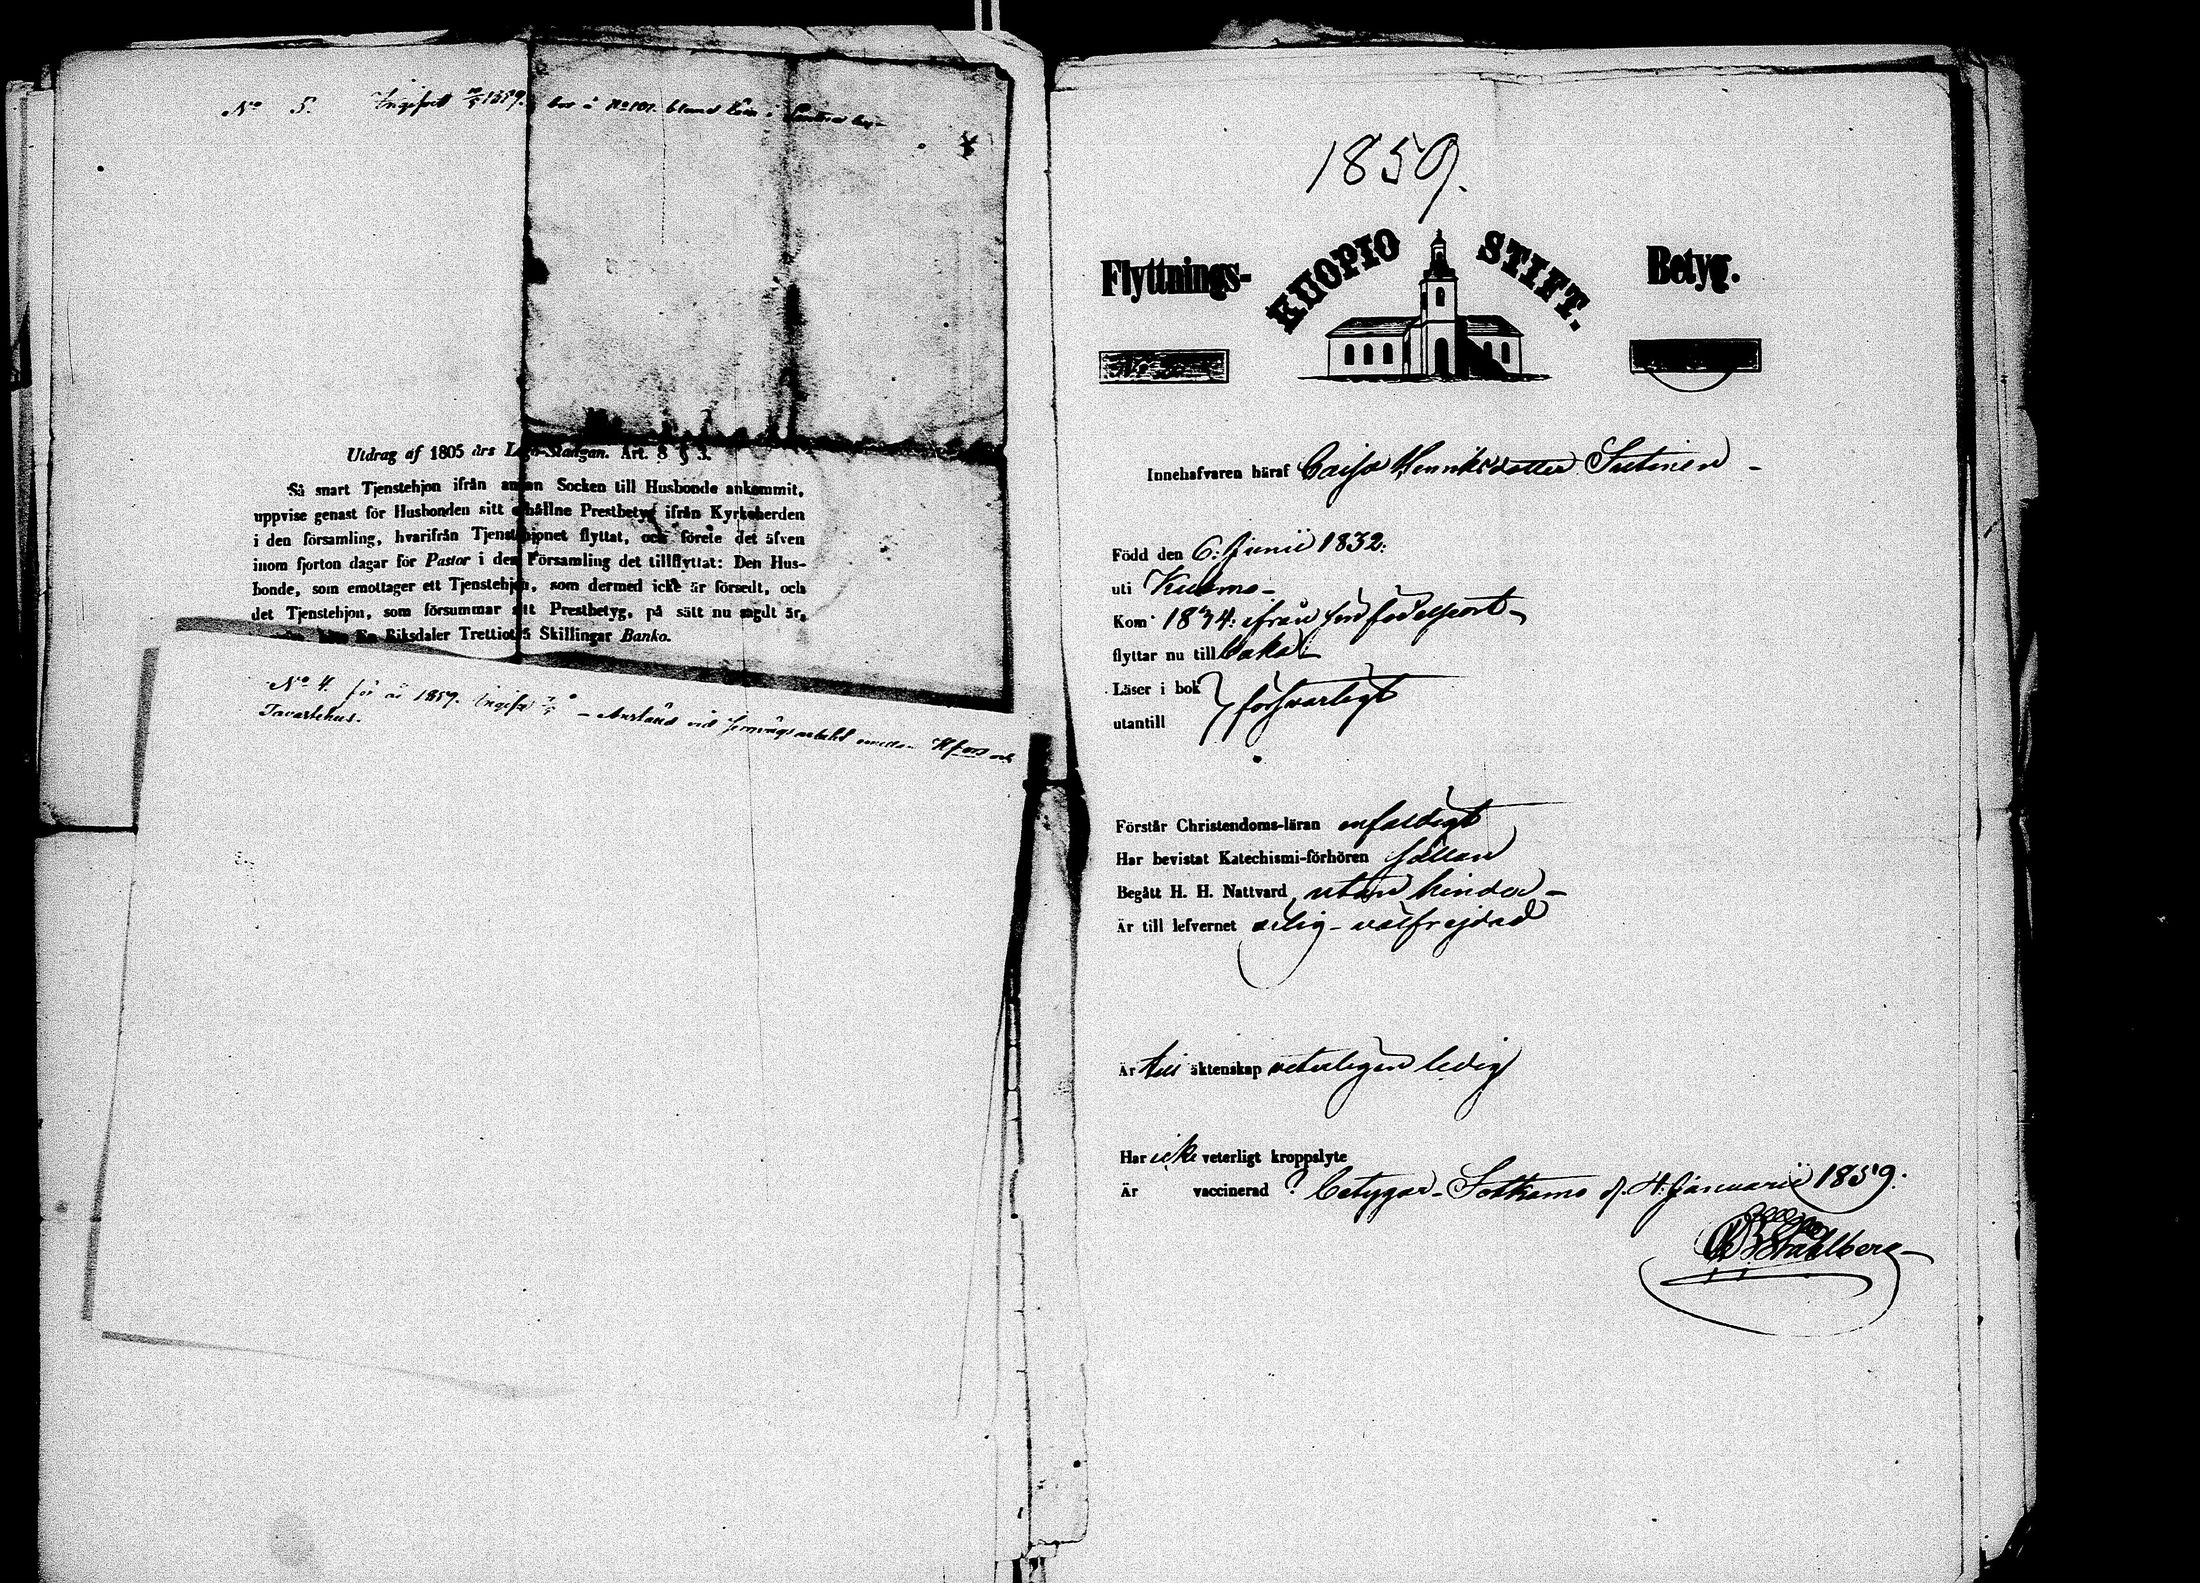 No 5. Ingifvet 1859, bor å No 101
Utdrag af 1805 års Lego-Stadgan. Art. 8 § 3.
Så snart Tjenstehjon ifrån annan Socken till Husbonde ankommit,
uppvise genast för Husbonden sitt erhållne Prestbetyg ifrån Kyrkoherden
i den församling, hvarifrån Tjenstehjonet flyttat, och förete det äfven
inom fjorton dagar för Pastor i den Församling det tillflyttat: Den Hus-
bonde, som emottager ett Tjenstehjon, som dermed icke är försedt, och
det Tjenstehjon, som försummar sitt Prestbetyg, på sätt nu sagdt är,
En Riksdaler Trettiotvå Skillingar Banko.
No 4. för år 1859. Ingifvet vid jernvägsarbetet emellan H:fors och
Tavastehus.
1859.
Flyttnings- KUOPIO STIFT. Betyg.
No
Innehafvaren häraf Caisa Henriksdotter Sutinen
Född den 6: Junii 1832:
uti Kuhmo
Kom 1834: ifrån sin födelseort
flyttar nu till baka
Läser i bok } försvarligt
utantill
Förstår Christendoms-läran enfaldigt
Har bevistat Katechismi-förhören sällan
Begått H. H. Nattvard utan hinder
Är till lefvernet ärlig - välfrejdad
Är till äktenskap veterligen ledig
Har icke veterligt kroppslyte
Är vaccinerad ? betygar - Sotkamo d. 4: Januarii 1859.
Stahlberg